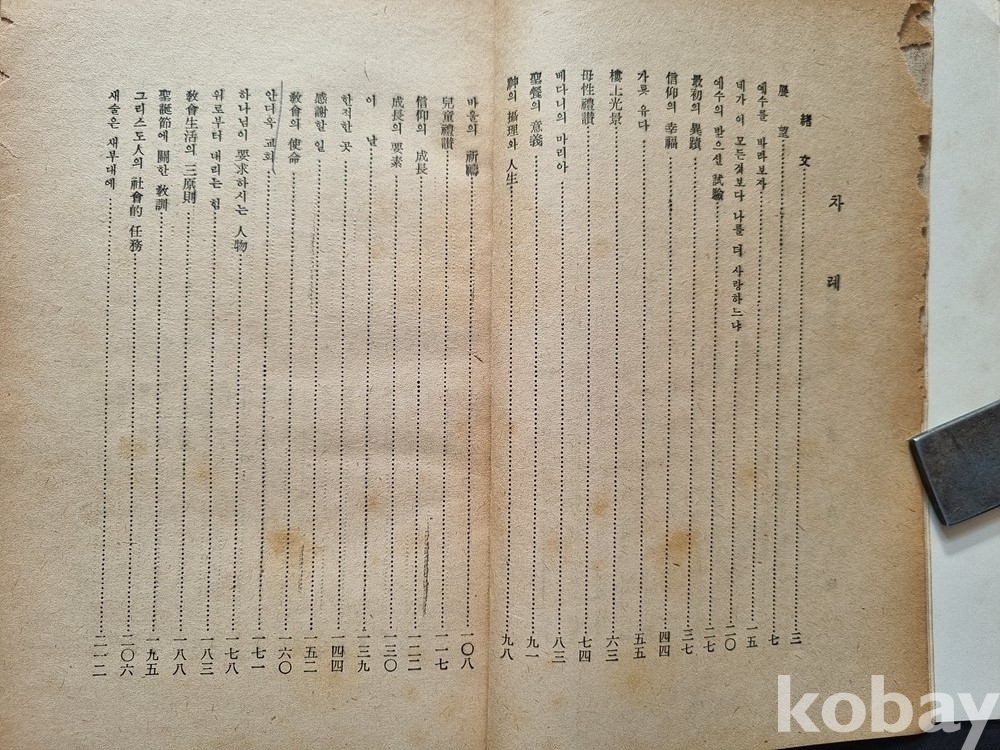 차례
緖文 三
屢望 七
예수를 바라보자 一五
네가 이 모든것보다 나를 더 사랑하느냐 二〇
예수의 받으신 試驗 二七
最初의 異蹟 三七
信仰의 幸福 四四
가룟 유다 五五
樓上光景 六三
母性禮讃 七四
베다니의 마리아 八三
聖餐의 意義 九一
神의 攝理와 人生 九八
바울의 祈禱 一〇八
兒童禮讃 一一七
信仰의 成長 一二二
成長의 要素 一三〇
이 날 一三九
한적한 곳 一四四
感謝할 일 一五二
敎會의 使命 一六〇
안디옥 교회 一七一
하나님이 要求하시는 人物 一七八
위로부터 내리는 힘 一八三
敎會生活의 三原則 一八八
聖誕節에 關한 敎訓 一九五
그리스도人의 社會的 任務 二〇六
새술은 새부대에 二一二
kobay